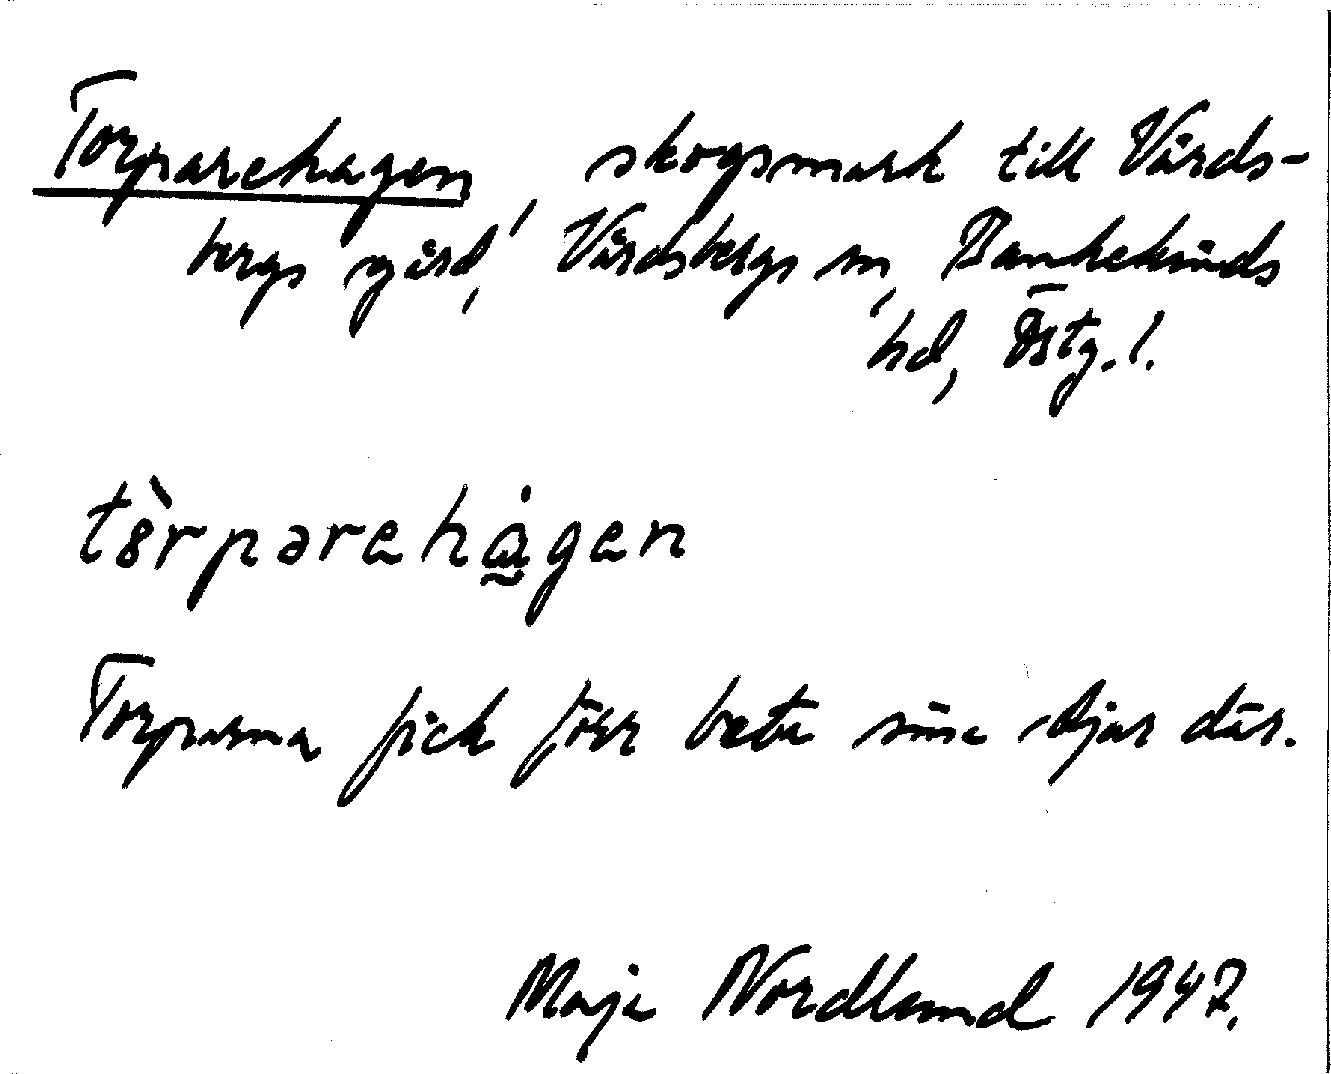 Torparehagen, skogsmark till Vårds-
bergs gård, Vårdsbergs sn, Bankekinds
hd, Östg. l.
tòrparehågen
Torparna fick förr beta sina djur där.
Maja Nordlund 1947.